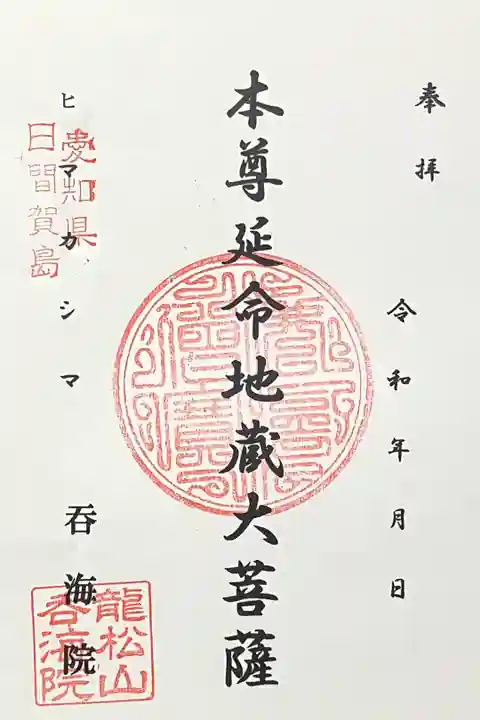 奉拝
令和年月日
本尊延命地蔵大菩薩
愛知県
日間賀島
ヒマカシマ
呑海院
龍松山
呑海院